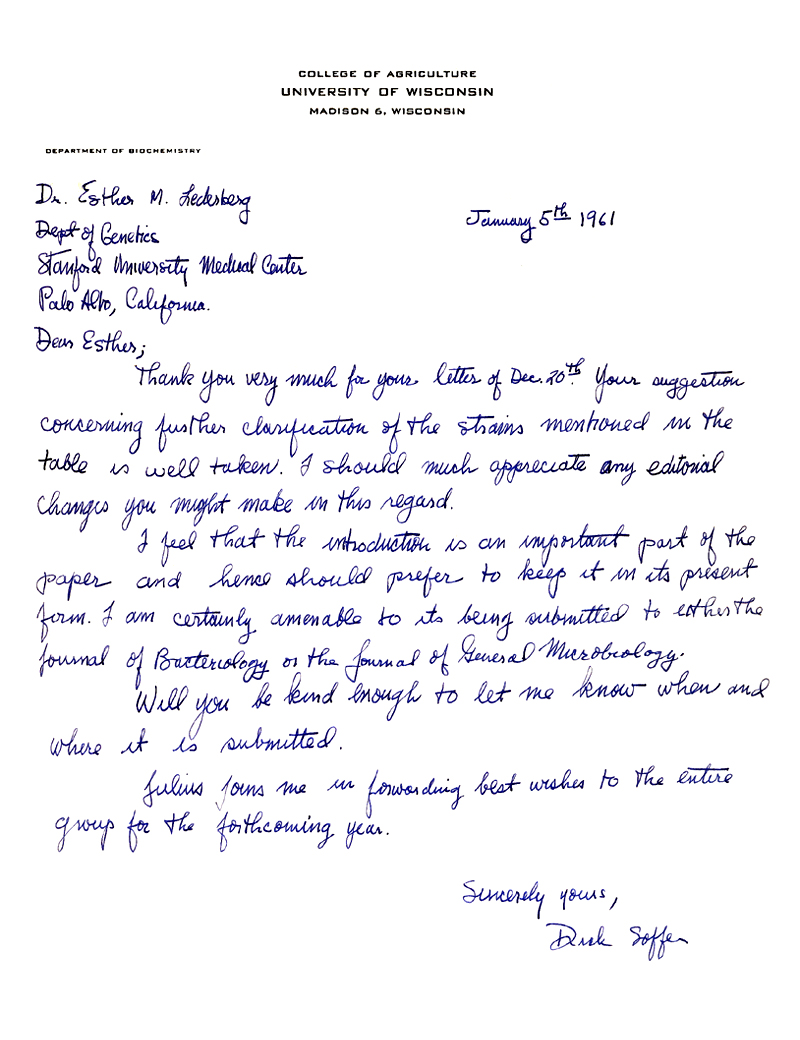 COLLEGE OF AGRICULTURE
UNIVERSITY OF WISCONSIN
MADISON 6, WISCONSIN
DEPARTMENT OF BIOCHEMISTRY
Dr. Esther M. Lederberg
January 5th 1961
Dept of Genetics
Stanford University Medical Center
Palo Alto, California.
Dear Esther;
Thank you very much for your letter of Dec. 20th. Your suggestion
concerning further clarification of the strains mentioned in the
table is well taken. I should much appreciate any editorial
changes you might make in this regard.
I feel that the introduction is an important part of the
paper and hence should prefer to keep it in its present
form. I am certainly amenable to its being submitted to either the
Journal of Bacteriology or the Journal of General Microbiology.
Will you be kind enough to let me know when and
where it is submitted.
Julius joins me in forwarding best wishes to the entire
group for the forthcoming year.
Sincerely yours,
Dick Soffer